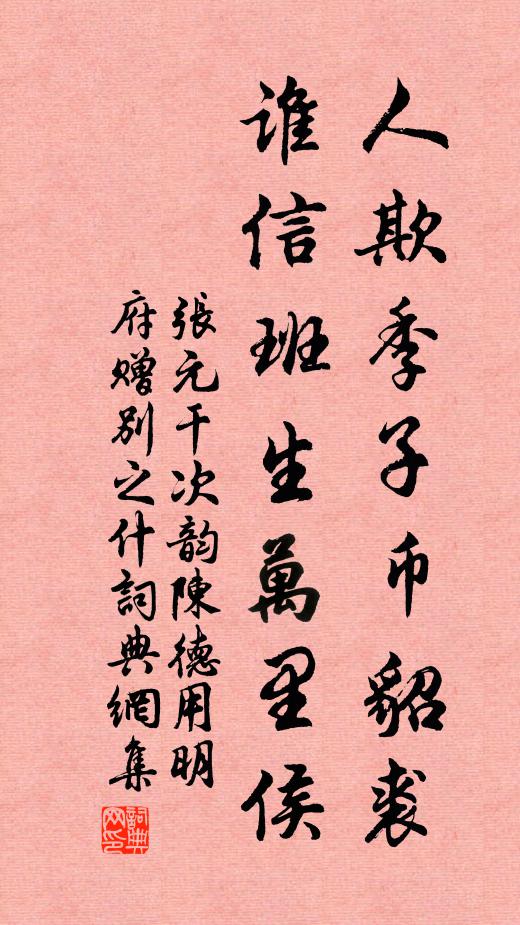 人欺季子币貂裘
谁信班生萬里侯
張元干次韵陳德用明
府赠别之什詞典網集
詞典网印